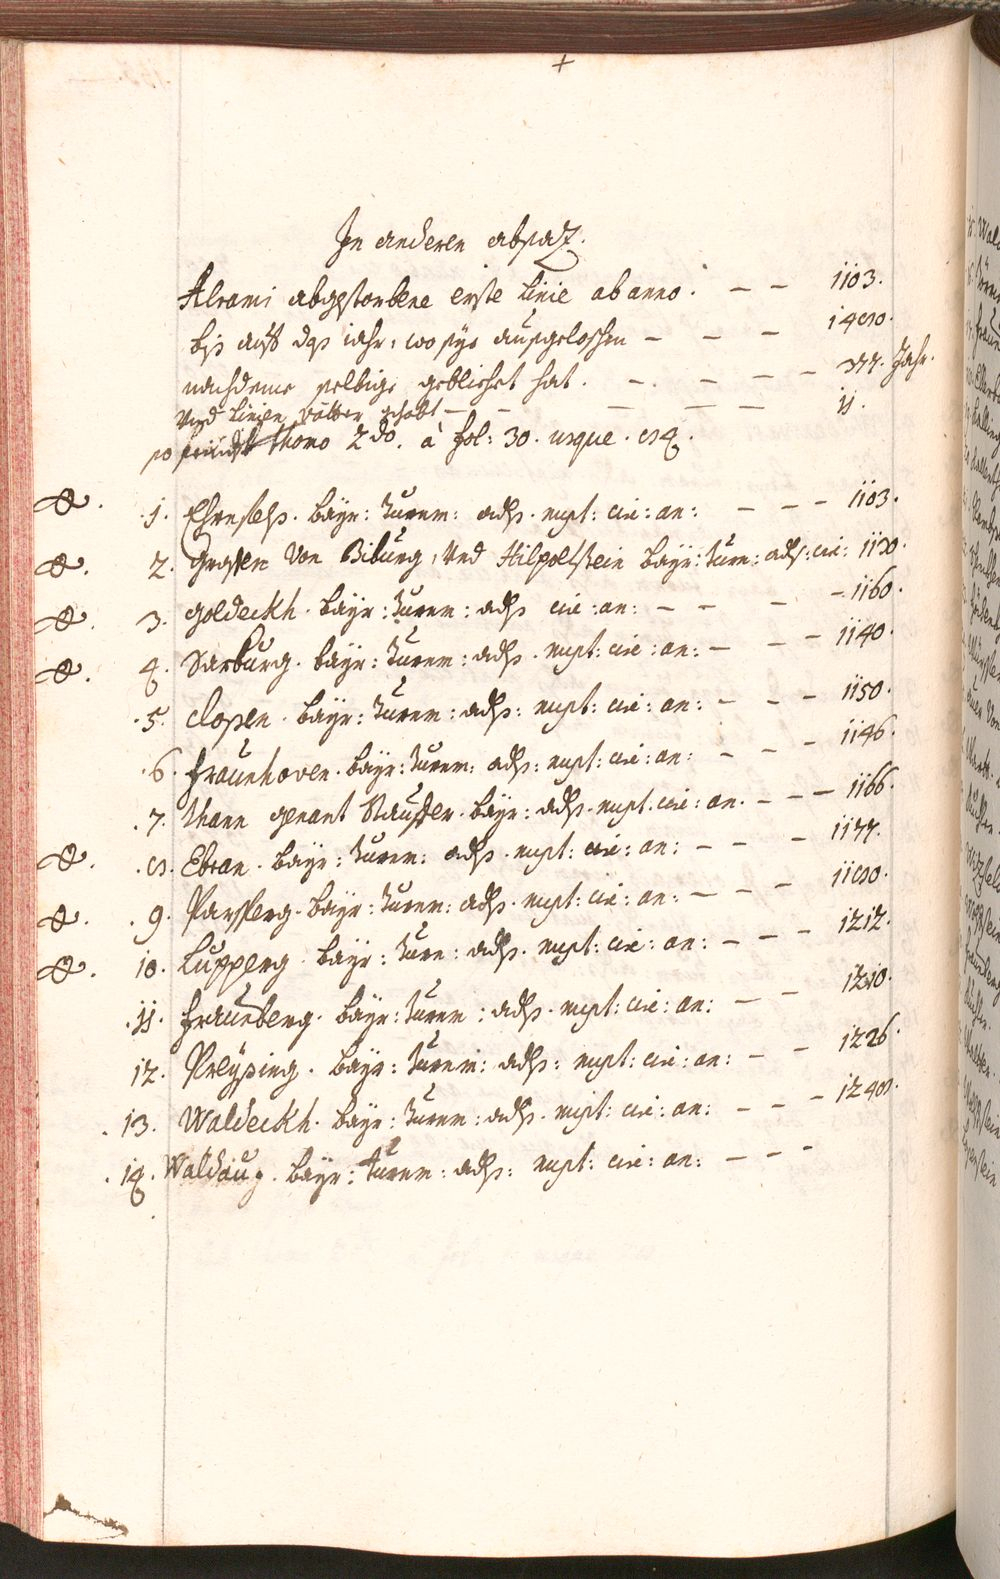 +
In anderen absaz.
Alrami abgestorbene erste Linie ab anno. — — 1103.
biß auff das iahr, wo sye außgeloschen — — — 1480.
nachdeme selbige geblichet hat. — — — — 377. Jahr.
Vnd Linien Vätter gehabt — — — — — 11.
so Thomo 2do. à fol: 30. usque. 84.
1. Ehrnfelß. bayr: turnm: adls. nupt: cir: an: — — — 1103.
2. Graffen Von Biburg, Vnd Hilpoltstein bayr: turn: adls: cir: 1130.
3. Goldeckh. bayr: turnm: adls cir: an: — — — — 1160.
4. Sarburg. bayr: turnm: adls. nupt: cir: an: — — — 1140.
5. Closen. bayr: turnm: adls: nupt: cir: an: — — — 1150.
6. Fraunhoven. bayr: turnm: adls: nupt: cir: an: — — — 1146.
7. Thann genant bayr: adls. nupt. cir: an. — — — 1166.
8. Ebran. bayr: turnm: adls. nupt: cir: an: — — — 1177.
9. Parsperg. bayr: turnm: adls. nupt: cir: an: — — — 1180.
10. Lupperg. bayr: turn: adls. nupt: cir: an: — — — 1212.
11. Fraunberg. bayr: turnm: adls. nupt: cir: an: — — 1210.
12. Preysing. bayr: turnm: adls: nupt: cir: an: — — 1226.
13. Waldeckh. bayr: turnm: adls. nupt: cir: an: — — — 1248.
14. Waldau. bayr: turnm: adls: nupt: cir: an: — — —